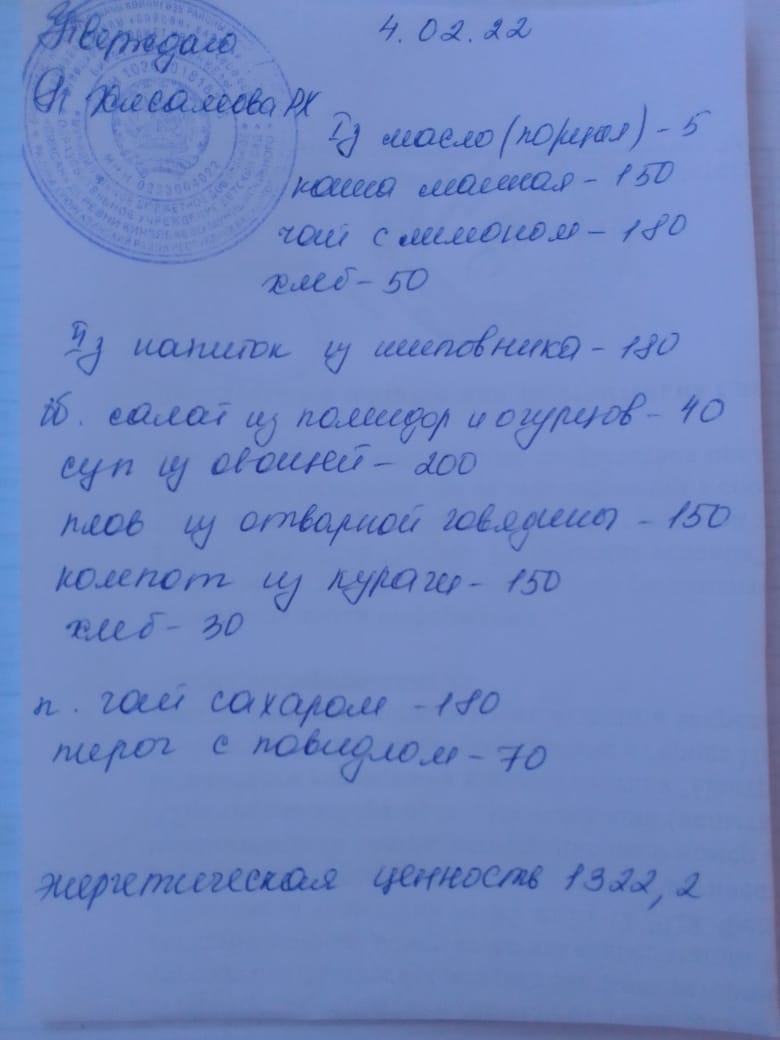 Утверждаю
4.02.22
Хисамова РХ
Iз масло (порция) - 5
каша манная - 150
чай с лимоном - 180
хлеб - 50
IIз напиток из шиповника - 180
об. салат из помидор и огурцов - 40
суп из овощей - 200
плов из отварной говядины - 150
компот из кураги - 150
хлеб - 30
п. чай сахаром - 180
пирог с повидлом - 70
энергетическая ценность 1322,2